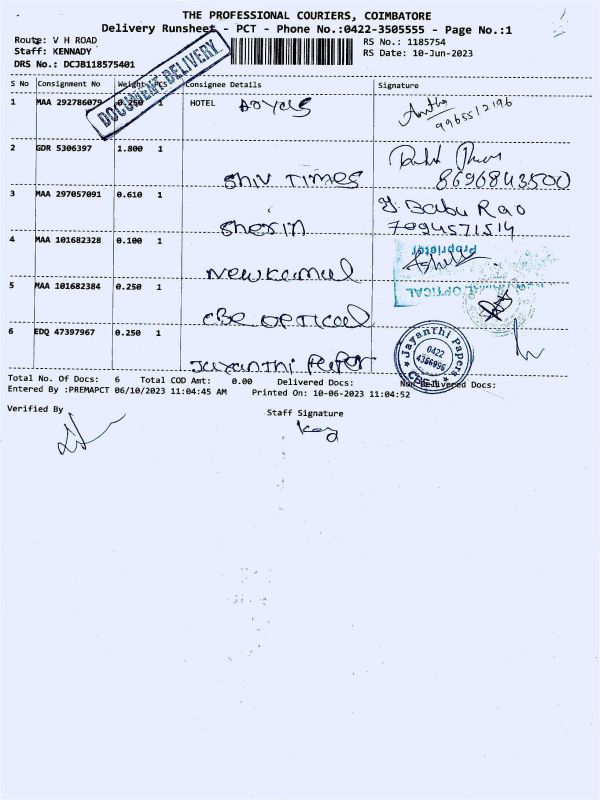 THE PROFESSIONAL COURIERS, COIMBATORE
Delivery Runsheet - PCT - Phone No.:0422-3505555 - Page No.:1
Route: V H ROAD
RS No.: 1185754
Staff: KENNADY
RS Date: 10-Jun-2023
DRS No.: DCJB118575401
DOCUMENT DELIVERY
S No Consignment No Weight Pcs Consignee Details Signature
1 MAA 292786079 0.250 1 HOTEL
9965512196
2 GDR 5306397 1.800 1
Shiv Times 8696843500
3 MAA 297057091 0.610 1 Y. Babu Rao
Sherin 7094571514
4 MAA 101682328 0.100 1 Proprietor
New Kamal
5 MAA 101682384 0.250 1 OPTICAL
CBE OPTICAL
6 EDQ 47397967 0.250 1 Jayanthi Papers
0422
4366996
CBE-1
Jayanthi Paper
Total No. Of Docs: 6 Total COD Amt: 0.00 Delivered Docs: Non Delivered Docs:
Entered By :PREMAPCT 06/10/2023 11:04:45 AM Printed On: 10-06-2023 11:04:52
Verified By
Staff Signature